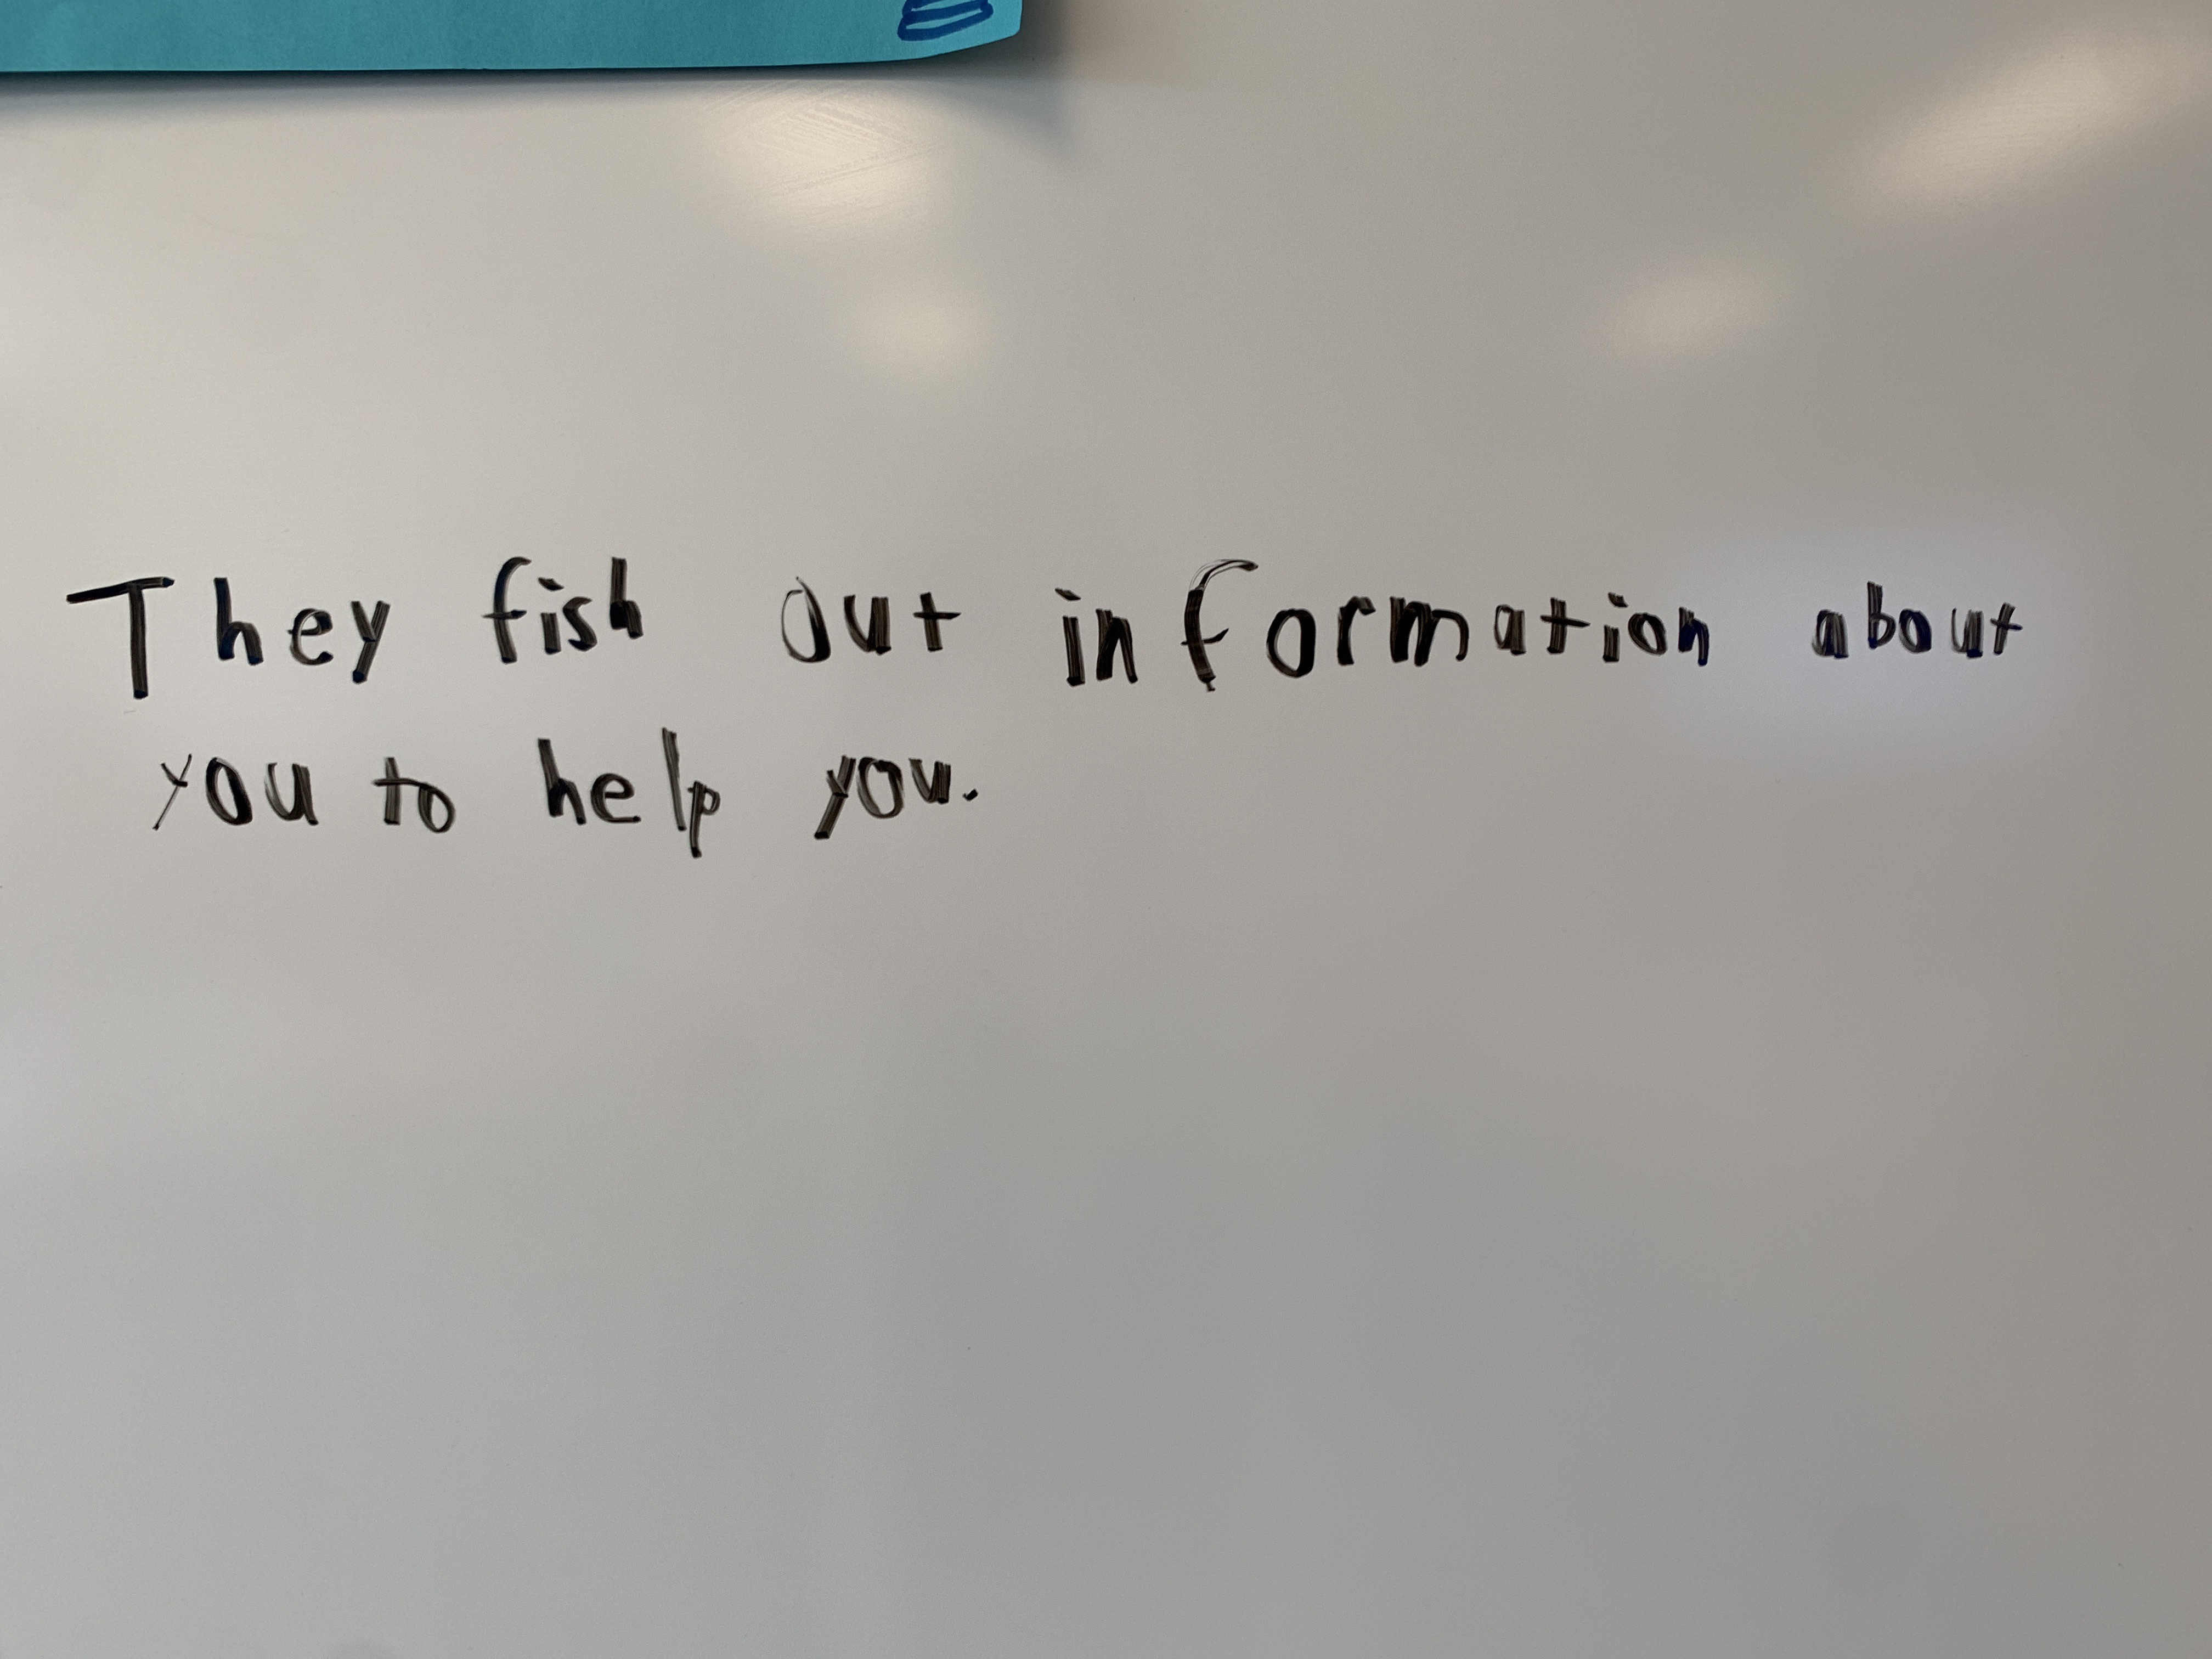 They fish out information about
you to help you.